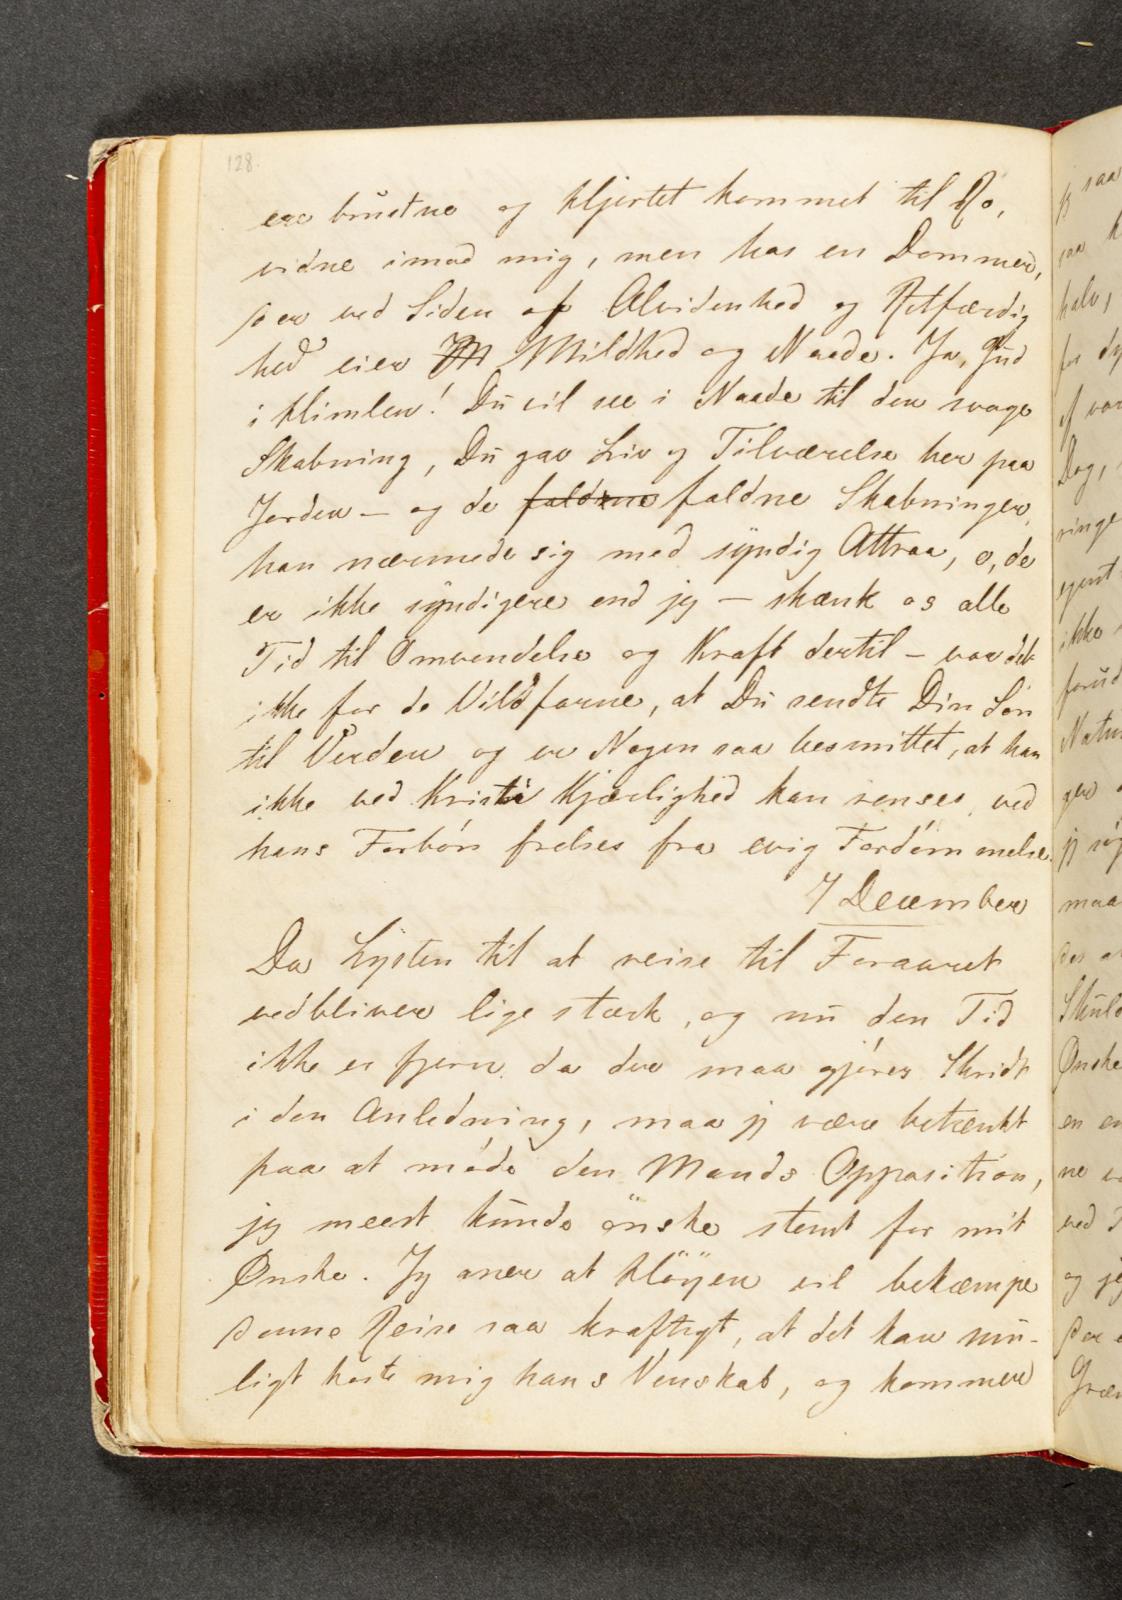 128.
ere brustne og Hjertet kommet til Ro,
vidne imod mig, men har en Dommer,
der ved Siden af Alvidenhed og Retfærdig
hed eier M Mildhed og Naade. Ja, Gud
i Himlen! Du vil see i Naade til den svage
Skabning, Du gav Liv og Tilværelse her paa
Jorden — og de faldne faldne Skabninger,
han nærmede sig med syndig Attraa, o, de
er ikke syndigere end jeg — skænk os alle
Tid til Omvendelse og Kraft dertil — var det
ikke for de Vildfarne, at Du sendte Din Søn
til Verden og er Nogen saa besmittet, at han
ikke ved Kristi Kjærlighed kan renses, ved
hans Forbøn frelses fra evig Fordømmelse.
7 December
Da Lysten til at reise til Foraaret
vedbliver lige stærk, og nu den Tid
ikke er fjern, da der maa gjøres Skridt
i den Anledning, maa jeg være betænkt
paa at møde den Mands Opposition,
jeg meest kunde önske stemt for mit
Ønske. Jeg aner at Höyen vil bekæmpe
denne Reise saa kraftigt, at det kan mu-
ligt koste mig hans Venskab, og kommer